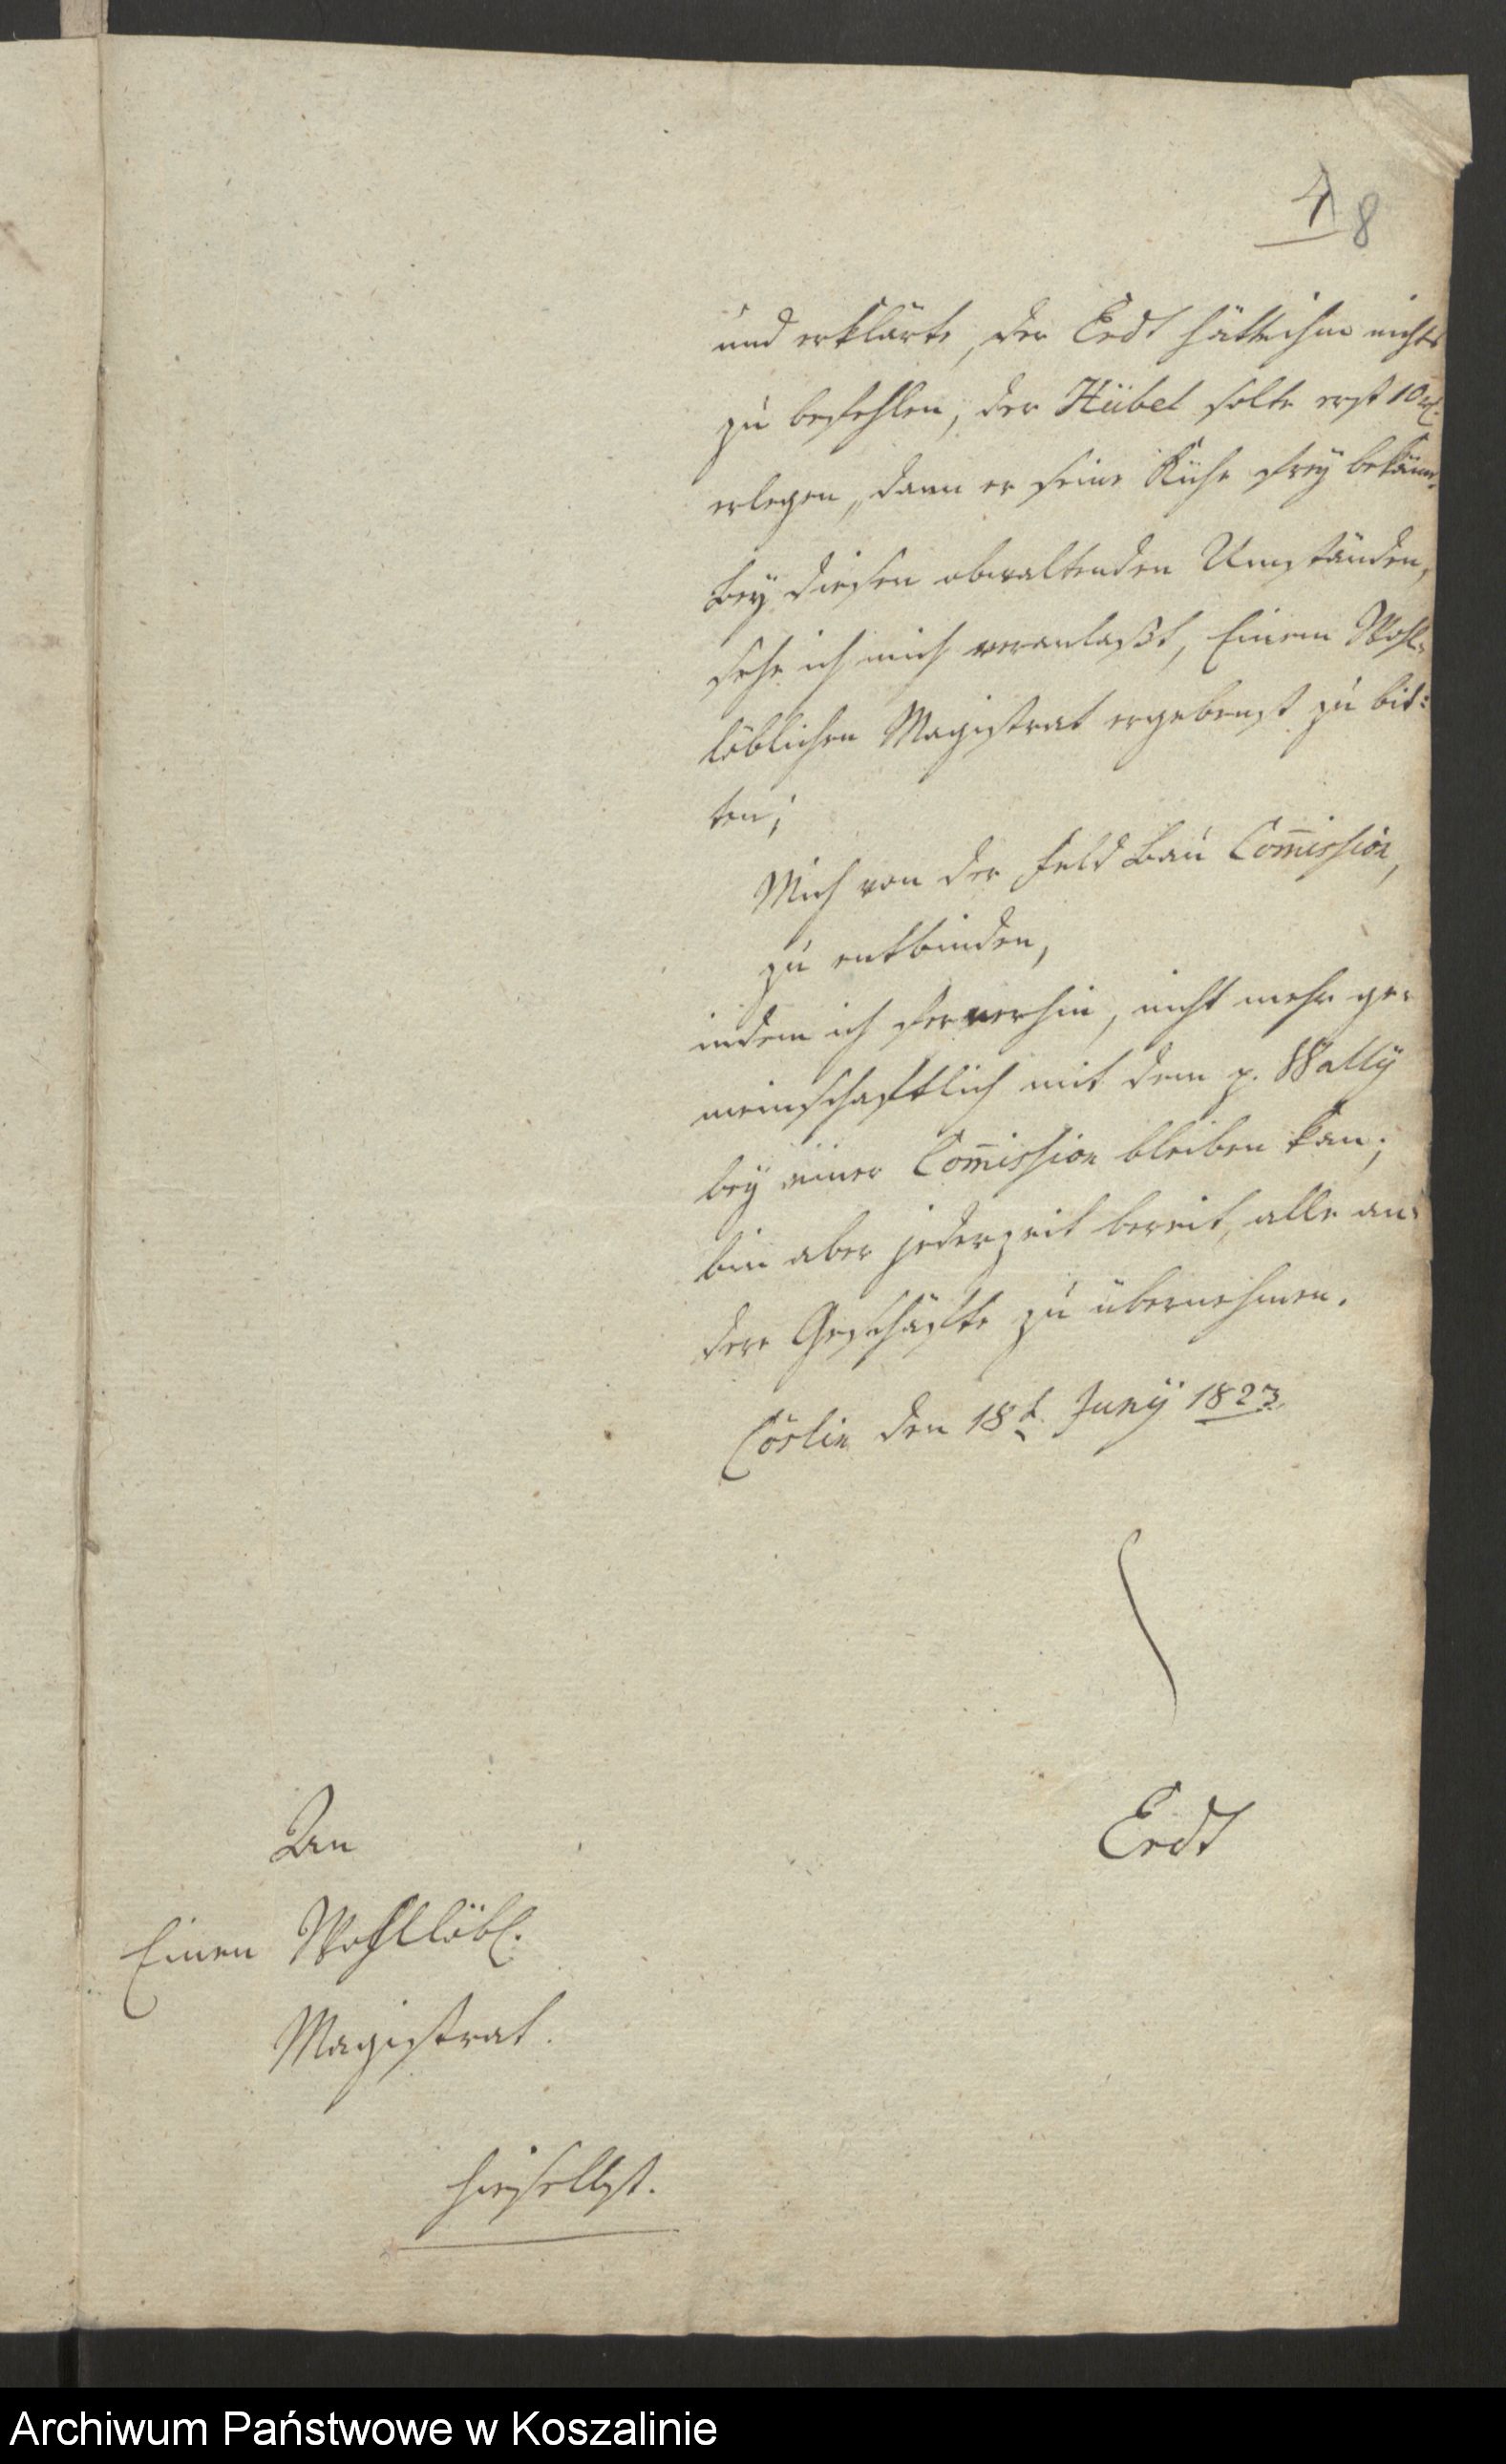 4 8
und erklärte, der Erdt hätte ihm nichts
zu befehlen, der Hübel solte erst 10 rl.
erlegen, dann er seine Kühe frey bekäme.
Bey diesen obwaltenden Umständen,
sehe ich mich veranlaßt, Einem Wohl-
löblichen Magistrat ergebenst zu bit-
ten;
Mich von der Feld Bau Com̄ission,
zu entbinden,
indem ich fernerhin, nicht mehr ge-
meinschaftlich mit dem p. Wally
bey einer Com̄ission bleiben kan;
bin aber jederzeit bereit, alle an-
dere Geschäfte zu übernehmen.
Cöslin den 18t. Juny 1823.
Erdt
An
Einen Wohllöbl.
Magistrat.
hieselbst.
Archiwum Państwowe w Koszalinie